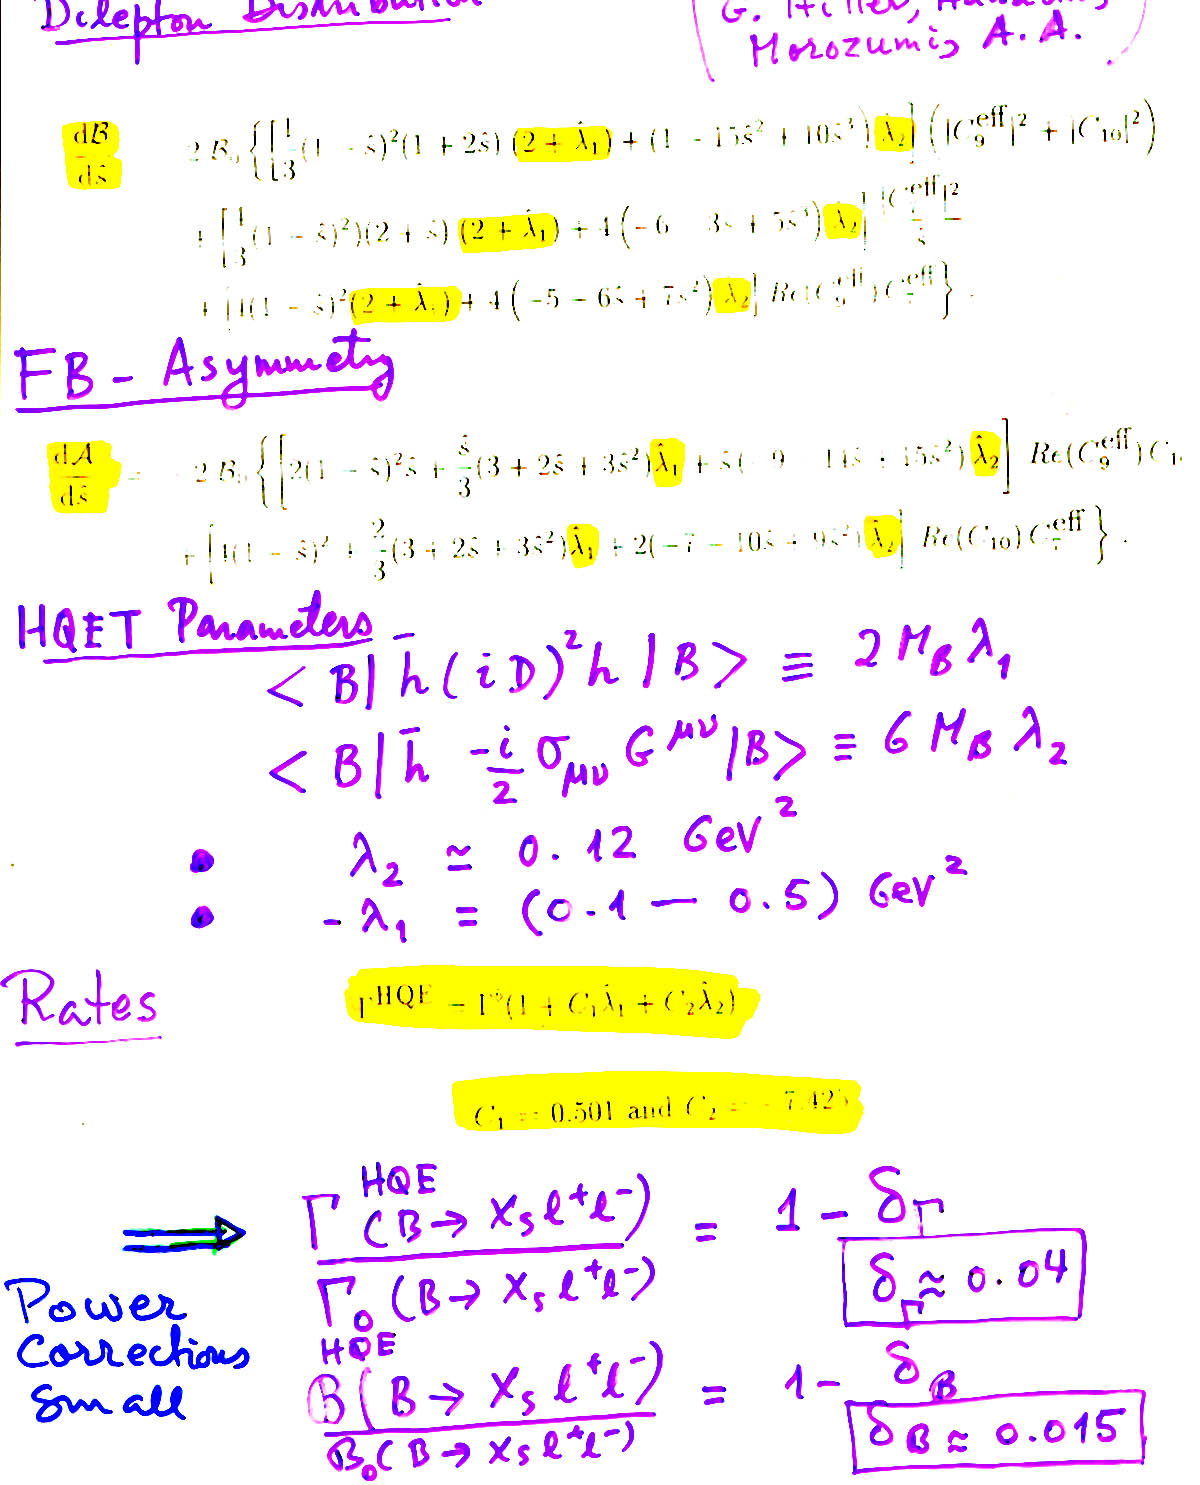 Dilepton Distribution
G. Hiller,
Morozumi, A. A.
dB/dŝ 2 B₀ { [ 1/3 (1 - ŝ)²(1 + 2ŝ) (2 + λ̂₁) + (1 - 15ŝ² + 10ŝ³) λ̂₂ ] ( |C₉^eff|² + |C₁₀|² )
+ [ 1/3 (1 - ŝ)²)(2 + ŝ) (2 + λ̂₁) + 4 ( -6 3ŝ + 5ŝ³ ) λ̂₂ ] |C₇^eff|² / ŝ
+ [ 4(1 - ŝ)² (2 + λ̂₁) + 4 ( -5 - 6ŝ + 7ŝ² ) λ̂₂ ] Re(C₉^eff) C₇^eff } .
FB - Asymmetry
dA/dŝ = - 2 B₀ { [ 2(1 - ŝ)²ŝ + ŝ/3 (3 + 2ŝ + 3ŝ²) λ̂₁ + ŝ( 9 14ŝ + 15ŝ²) λ̂₂ ] Re(C₉^eff) C₁
+ [ 4(1 - ŝ)² + 2/3 (3 + 2ŝ + 3ŝ²) λ̂₁ + 2(-7 - 10ŝ + 9ŝ²) λ̂₂ ] Re(C₁₀) C₇^eff } .
HQET Parameters
< B| h̄ (i D)² h | B > ≡ 2 M_B λ₁
< B | h̄ -i/2 σ_μν G^μν |B> ≡ 6 M_B λ₂
• λ₂ ≃ 0.12 GeV²
• -λ₁ = (0.1 — 0.5) GeV²
Rates
Γ^HQE = Γ^b(1 + C₁λ̂₁ + C₂λ̂₂)
C₁ = 0.501 and C₂ = - 7.425
⟹ Γ^HQE (B → X_s l⁺l⁻) / Γ₀ (B → X_s l⁺l⁻) = 1 - δ_Γ
δ_Γ ≈ 0.04
Power
Corrections
Small
B^HQE (B → X_s l⁺l⁻) / B₀ (B → X_s l⁺l⁻) = 1 - δ_B
δ_B ≈ 0.015